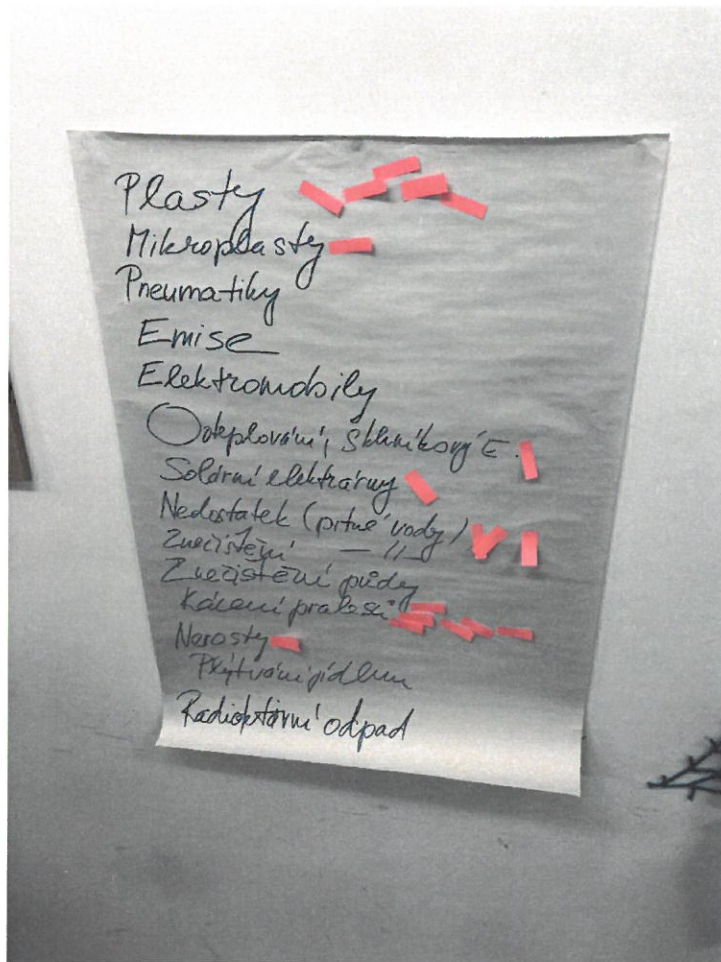 Plasty
Mikroplasty
Pneumatiky
Emise
Elektromobily
Oteplování, skleníkový E.
Solární elektrárny
Nedostatek (pitné vody)
Znečištění — 11 —
Znečištění půdy
Kácení pralesů
Nerosty
Plýtvání jídlem
Radioaktivní odpad